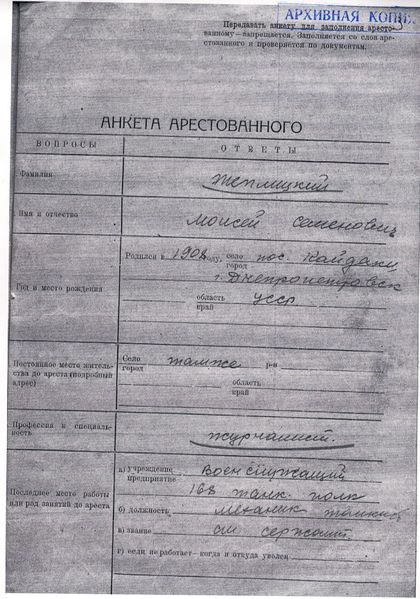 АРХИВНАЯ КОПИ
Передавать анкету для заполнения аресто-
ванному—запрещается. Заполняется со слов аре-
стованного и проверяется по документам.
АНКЕТА АРЕСТОВАННОГО
ВОПРОСЫ ОТВЕТЫ
Фамилия
Имя и отчество Моисей Семенович
Родился в 1908 году, село город пос. Кайдаки
г. Днепропетровск
Год и место рождения
область край УССР
Постоянное место житель-
ства до ареста (подробный
адрес)
Село город там же р-н
область
край
Профессия и специаль-
ность журналист.
Последнее место работы
или род занятий до ареста
а) учреждение предприятие Военслужащий
168 танк. полк
б) должность механик танков
в) звание ст сержант
г) если не работает—когда и откуда уволен